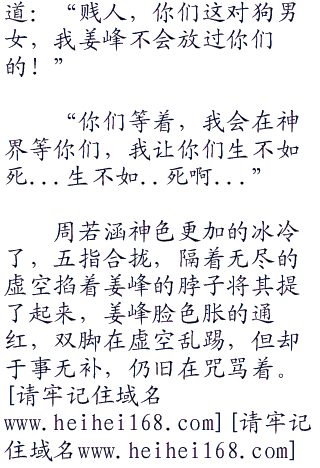 道：“贱人，你们这对狗男
女，我姜峰不会放过你们
的！”
“你们等着，我会在神
界等你们，我让你们生不如
死...生不如..死啊...”
周若涵神色更加的冰冷
了，五指合拢，隔着无尽的
虚空掐着姜峰的脖子将其提
了起来，姜峰脸色胀的通
红，双脚在虚空乱踢，但却
于事无补，仍旧在咒骂着。
[请牢记住域名
www.heihei168.com][请牢记
住域名www.heihei168.com]